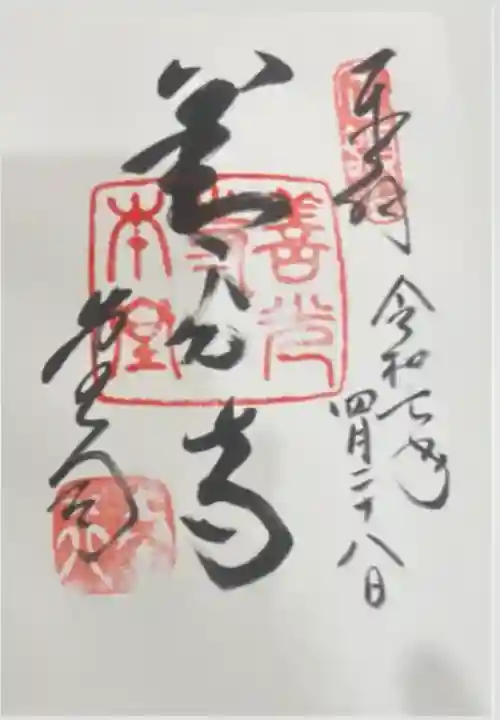 奉拝
令和七年
四月二十八日
善光寺
善光
寺
本堂